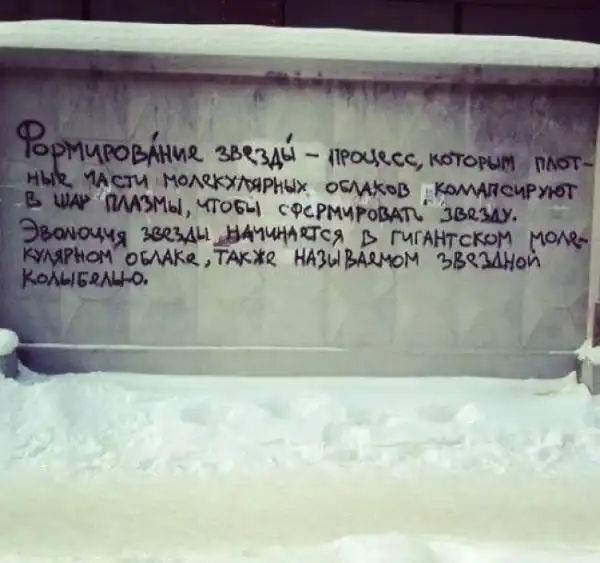 Формирова́ние звезды́ – процесс, которым плот-
ные части молекулярных облаков коллапсируют
в шар плазмы, чтобы сформировать звезду.
Эволюция звезды начинается в гигантском моле-
кулярном облаке, также называемом звездной
колыбелью.